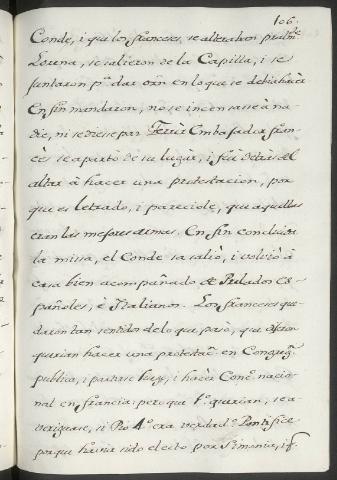 106.
Conde, i qui los franceses, se alteraban pralm.te
Lorena, se salieron de la Capilla, i se
juntaron p.a dar orn en lo que se debia hacer
En fin mandaron, no se incensasse à na-
die, ni se diesse paz. Ferrir Embajador fran-
cès se apartò de su lugar, i fuè detras del
altar à hacer una protestacion, por
que es letrado, i pareciole, que aquellas
eran las mejores armas. En fin concluida
la missa, el Conde se saliò, i volviò à
casa bien acompañado de Prelados Es-
pañoles, è Italianos. Los franceses que-
daron tan sentidos de lo que pasò, que dijeron
querian hacer una protestac.n en Congreg.n
publica, i partirse luego, i hacer Conc.o nacio-
nal en francia: pero que 1.o querian, se a-
veriguase, si Pio 4.o era verdad.o Pontifice
porque havia sido electo por Simonia, i q.